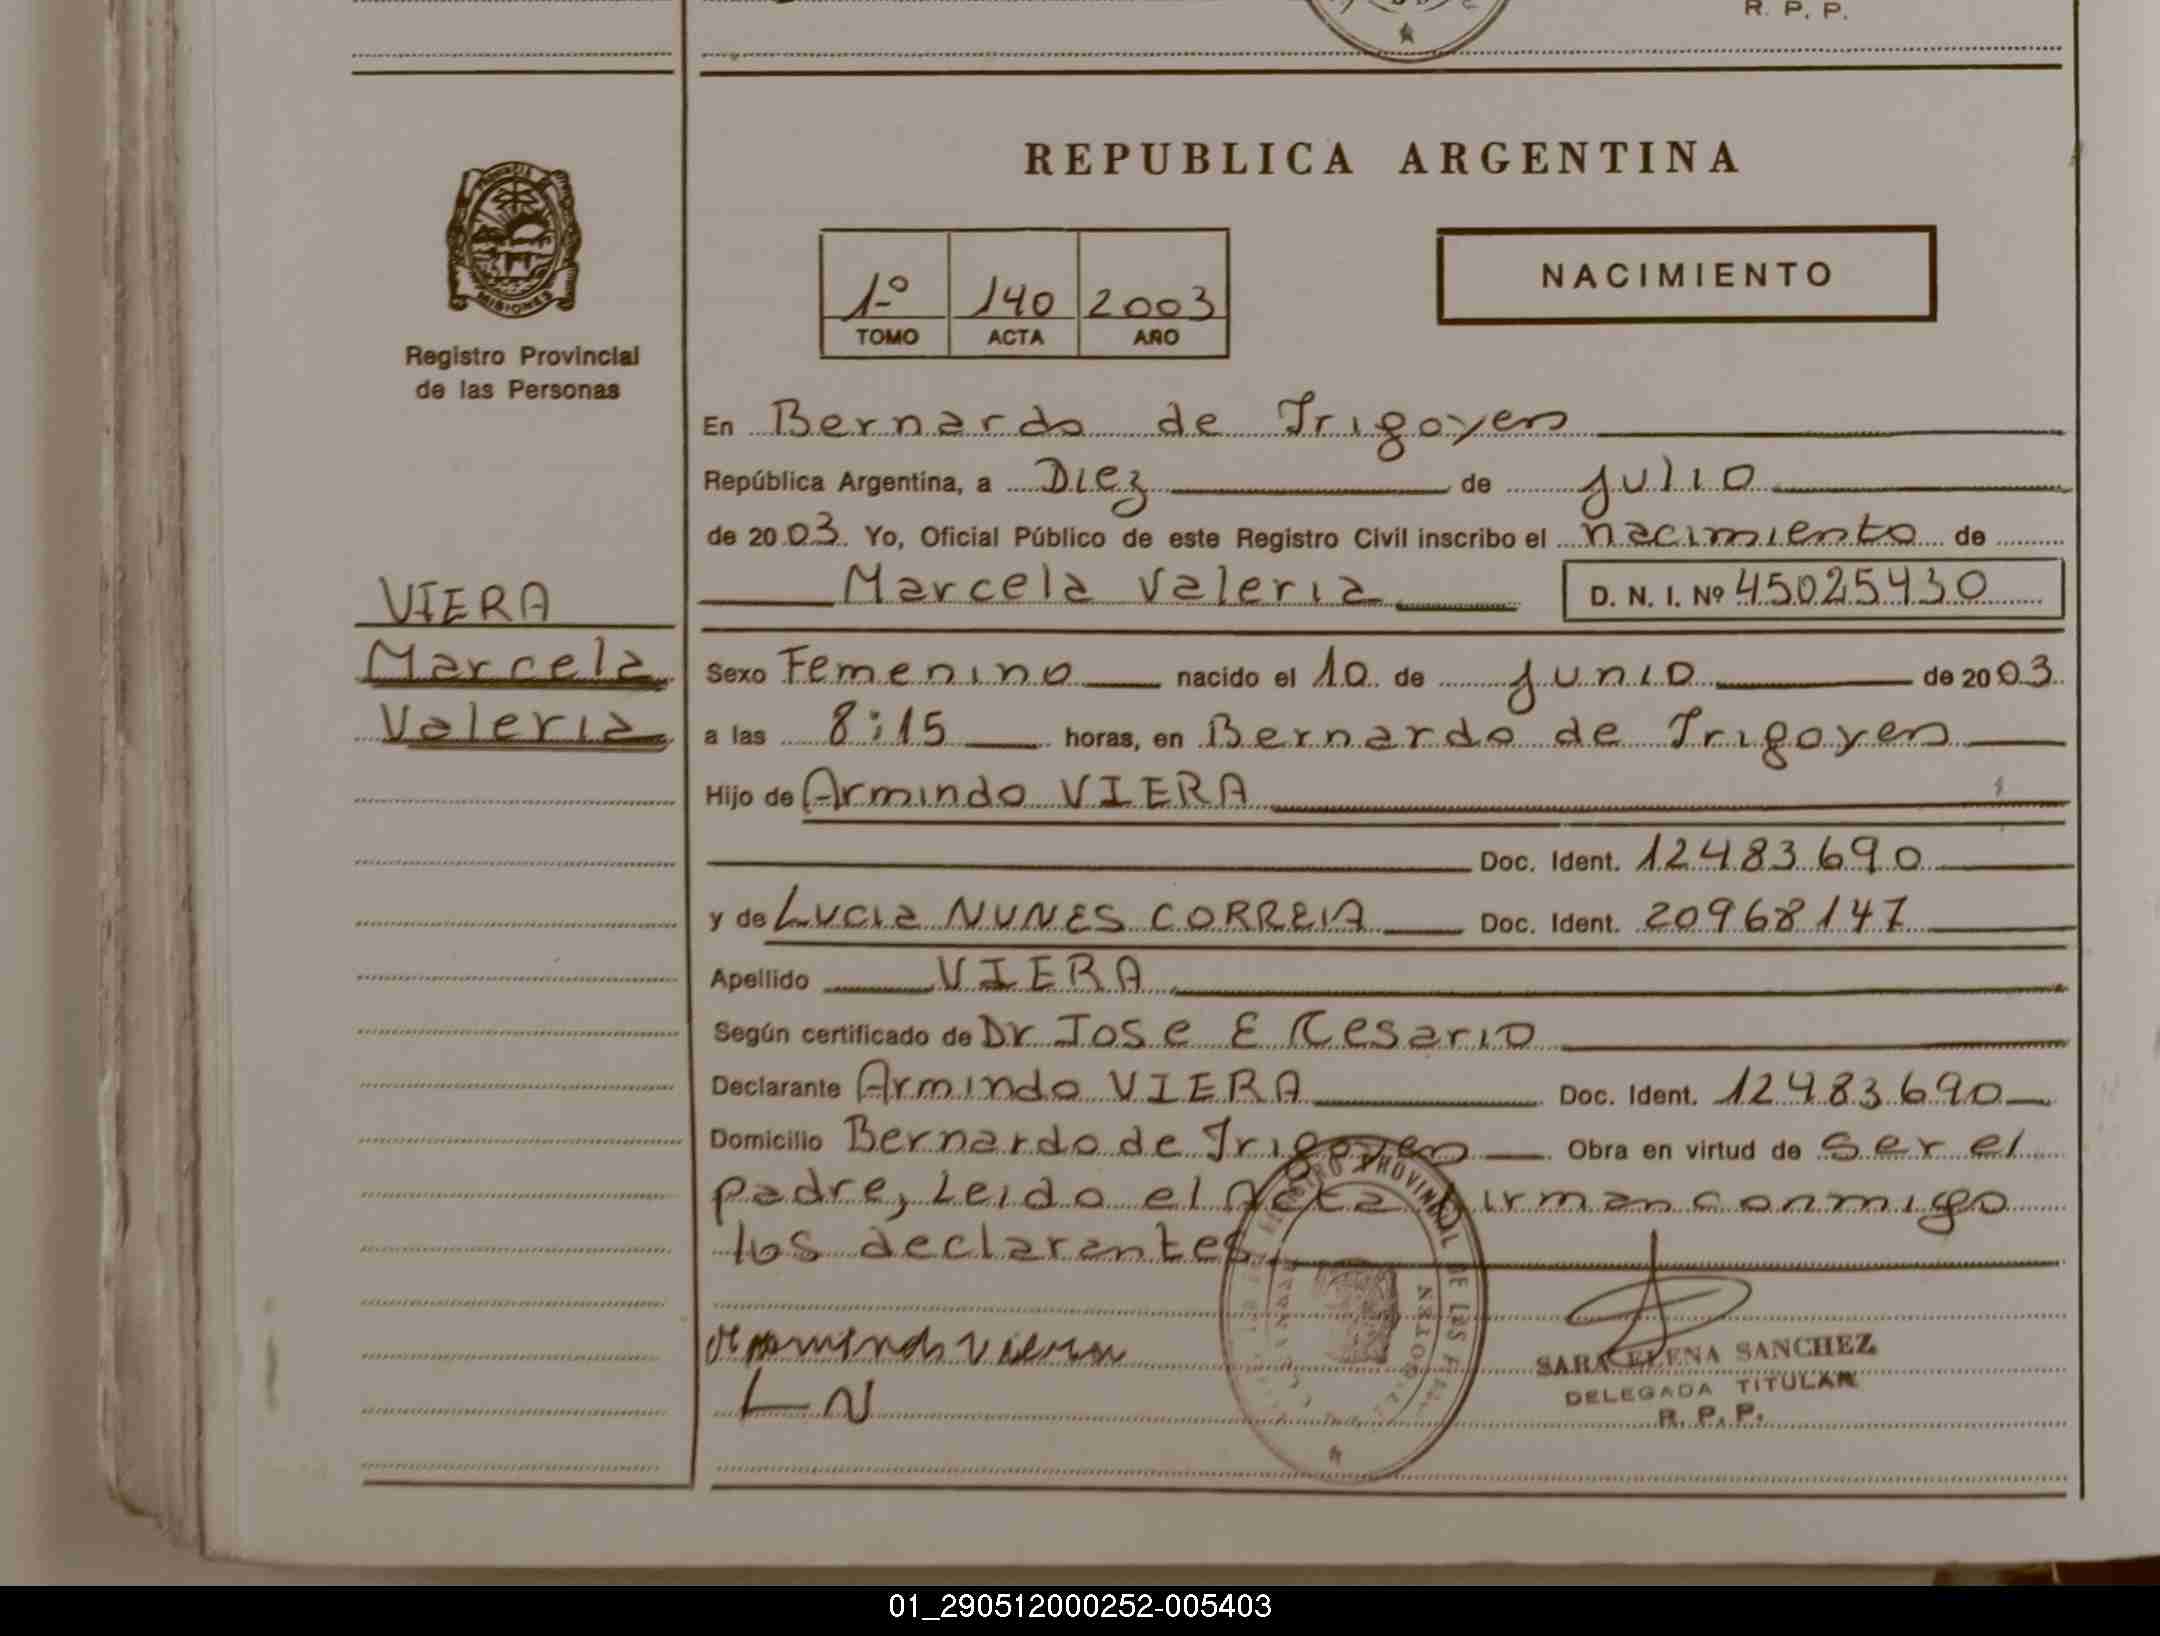 R. P. P.
REPUBLICA ARGENTINA
MISIONES
Registro Provincial
de las Personas
1º 140 2003
TOMO ACTA AÑO
NACIMIENTO
En Bernardo de Irigoyen
República Argentina, a Diez de julio
de 2003. Yo, Oficial Público de este Registro Civil inscribo el nacimiento de
Marcela Valeria D. N. I. Nº 45025430
VIERA
Marcela
Valeria
Sexo Femenino nacido el 10 de junio de 2003
a las 8:15 horas, en Bernardo de Irigoyen
Hijo de Armindo VIERA
Doc. Ident. 12483690
y de Lucia NUNES CORREIA Doc. Ident. 20968147
Apellido VIERA
Según certificado de Dr Jose E Cesario
Declarante Armindo VIERA Doc. Ident. 12483690
Domicilio Bernardo de Irigoyen Obra en virtud de ser el
padre, Leido el Acta Firman conmigo
los declarantes
Armindo Viera
L N
SARA ELENA SANCHEZ
DELEGADA TITULAR
R. P. P.
01_290512000252-005403